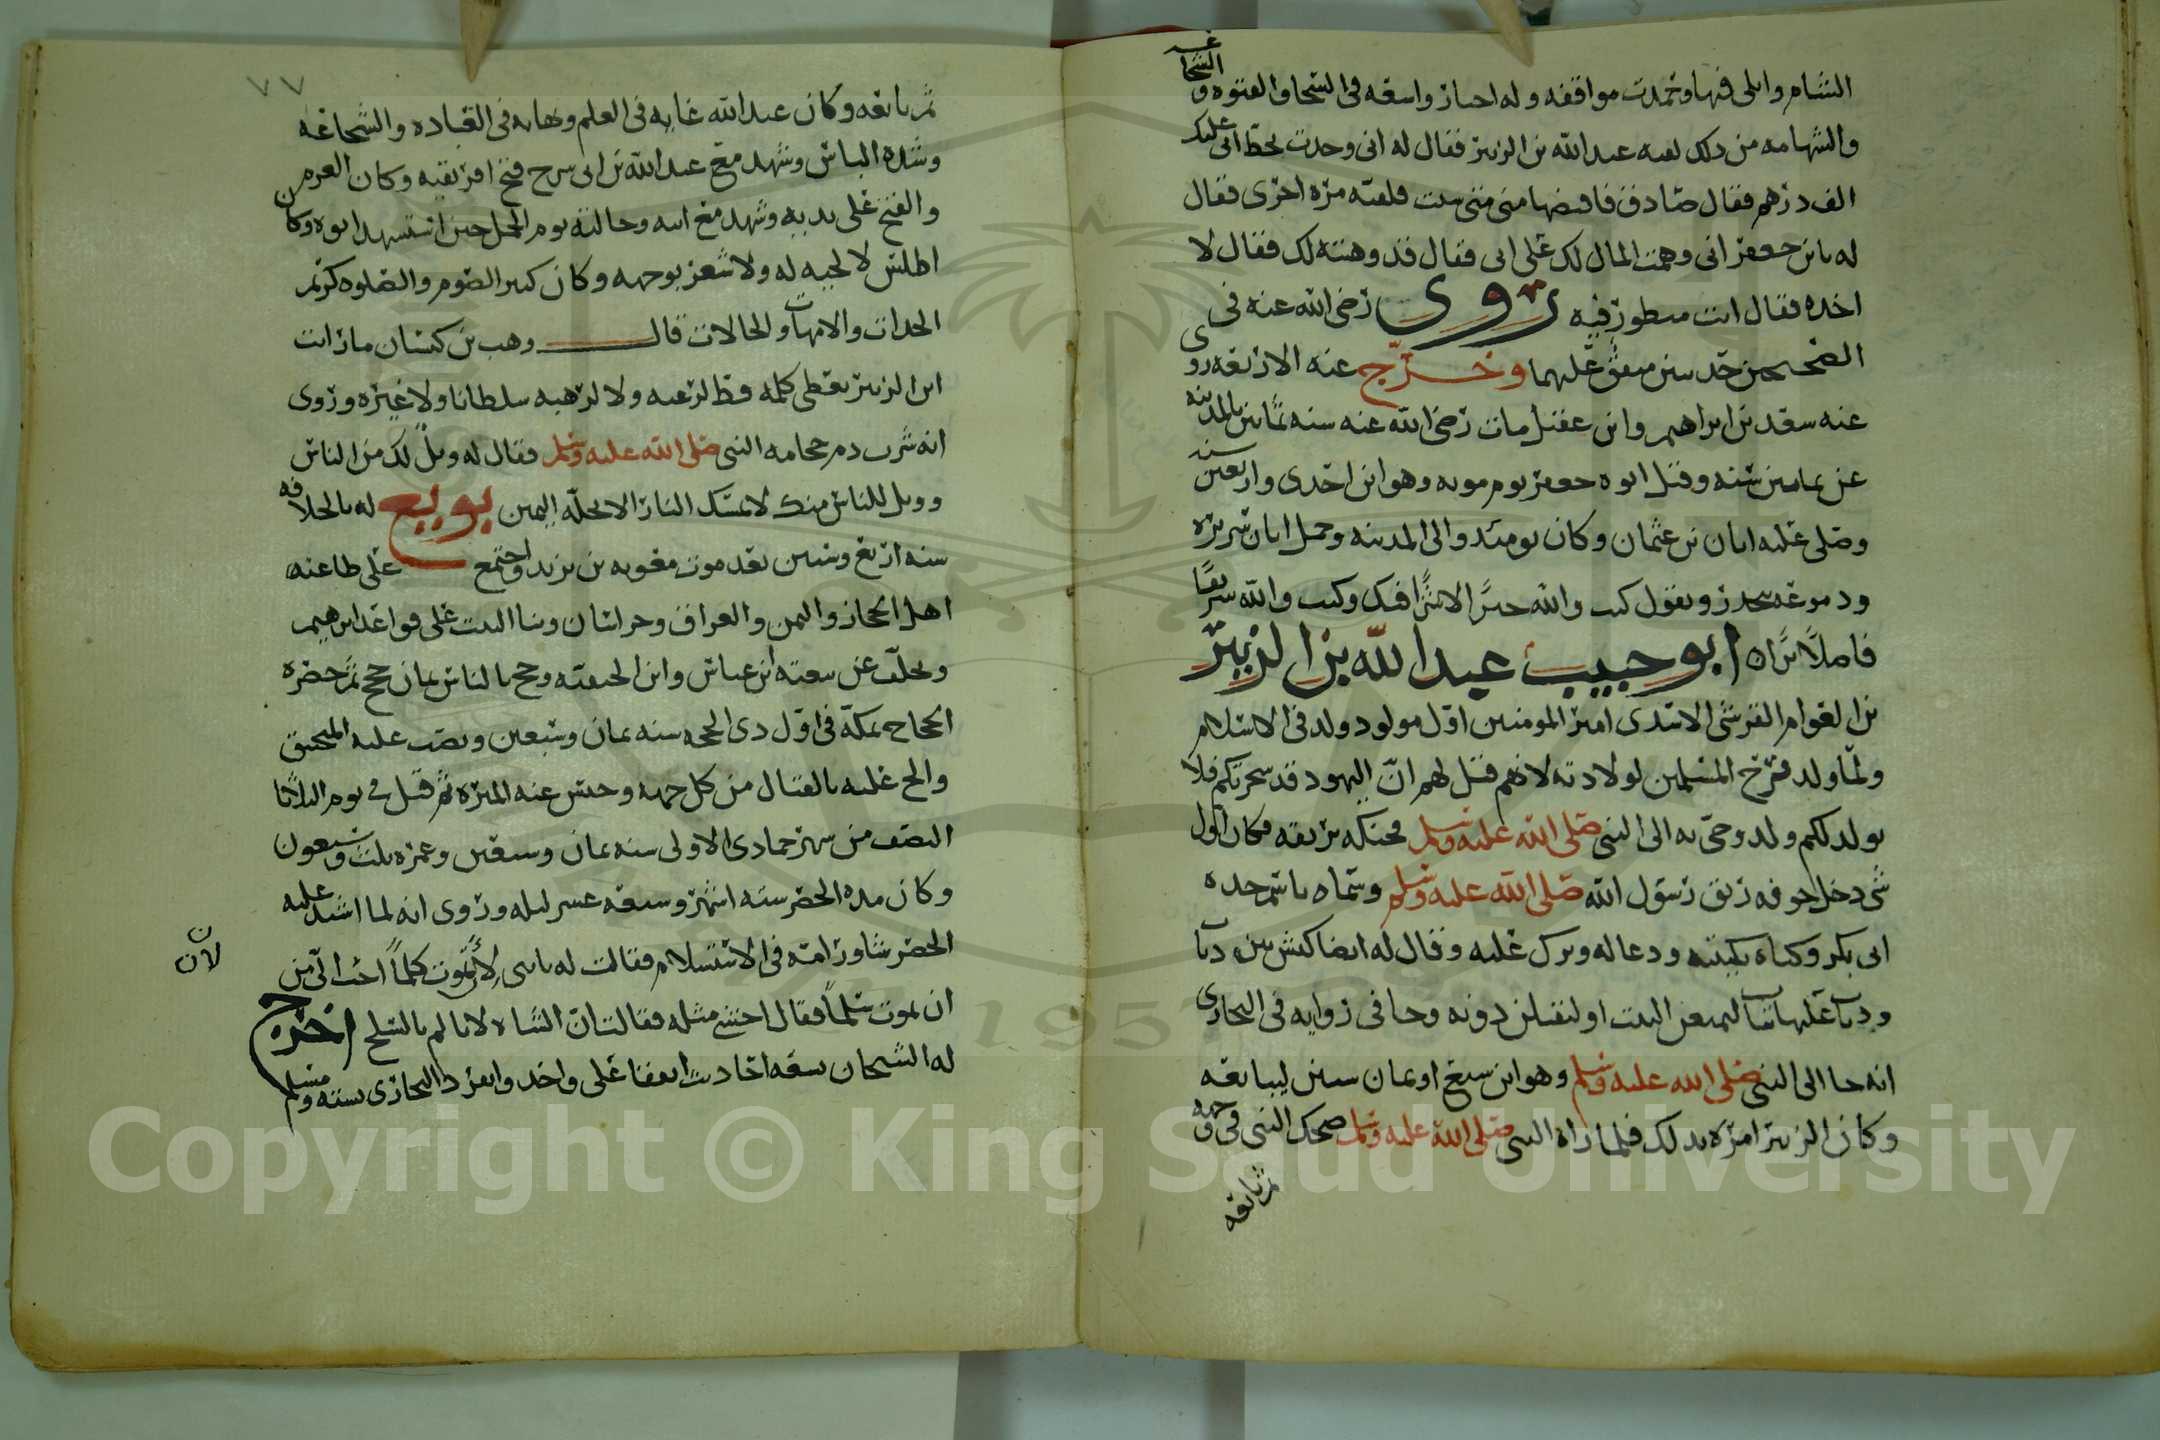 الشام وابلى فيها وحمدت مواقفه وله اخبار واسعه فى السخا والفتوه والشجاعه
والشهامه من ذلك لقيه عبد الله بن الزبير فقال له انى وجدت بخط ابى عليك
الف درهم فقال صادق فاقبضها منى متى شيت فلقيه مره اخرى فقال
له يابن جعفر انى وهمت المال لك على ابى فقال قد وهبته لك فقال لا
اخذه فقال انت مبطور فيه روى رضى الله عنه فى
الصحيحين حديثين متفق عليهما وخرج عنه الاربعه روى
عنه سعد بن ابراهيم وابن عقيل مات رضى الله عنه سنه ثمانين بالمدينه
عن ثمانين سنه وقتل ابوه جعفر يوم موته وهو ابن احدى واربعين سنه
وصلى عليه ابان بن عثمان وكان يومئذ والى المدينه وحمل ابان سريره
ودموعه تحدر ويقول كنت والله خيرًا لا شرًّا فيك وكنت والله شريفًا
فاضلاً برًّا ابو خبيب عبد الله بن الزبير
بن العوام القرشى الاسدى امير المومنين اول مولود ولد فى الاسلام
ولمّا ولد فرح المسلمين لولادته لانهم قيل لهم ان اليهود قد سحرتكم فلا
يولد لكم ولد وجئ به الى النبى صلى الله عليه وسلم فحنكه بريقه فكان اول
شى دخل جوفه ريق رسول الله صلى الله عليه وسلم وسماه باسم جده
ابى بكر وكناه بكنيته ودعا له وبرك عليه وقال له ايضا كبش بين ذياب
وذياب عليها ثياب ليمنعن البيت او ليقتلن دونه وجا فى روايه فى البخارى
انه جا الى النبى صلى الله عليه وسلم وهو ابن سبع او ثمان سنين ليبايعه
وكان الزبير امره بذلك فلما راه النبى صلى الله عليه وسلم ضحك النبى فى وجهه
ثم بايعه
٧٧
ثم بايعه وكان عبد الله غايه فى العلم ونهايه فى العباده والشجاعه
وشده الباس وشهد مع عبد الله بن ابى سرح فتح افريقيه وكان العزم من
والفتح على يديه وشهد مع ابيه وخالته يوم الجمل حين استشهد ابوه وكان
اطلس لا لحيه له ولا شعر بوجهه وكان كبير الصوم والصلوه كريم
الجدات والامهات والخالات قال وهب بن كيسان ما رايت
ابن الزبير يعطى كلمه قط لرغبه ولا لرهبه سلطانا ولا غيره وروى
انه شرب دم حجامه النبى صلى الله عليه وسلم فقال له ويلٌ لك من الناس
وويل للناس منك لا تمسك النار الا تحله اليمين بويع له بالخلافه
سنه اربع وستين بعد موت معويه بن يزيد واجتمع على طاعته
اهل الحجاز واليمن والعراق وخراسان وبنا البيت على قواعد ابرهيم
وتخلف عن بيعته ابن عباس وابن الحنفيه وحج بالناس ثمان حجج ثم حضره
الحجاج بمكه فى اول ذى الحجه سنه ثمان وسبعين ونصب عليه المنجنيق
والح عليه بالقتال من كل جهه وحبس عنه الميره ثم قتل فى يوم الثلاثا
النصف من شهر جمادى الاولى سنه ثمان وسبعين وعمره ثلث وسبعون
وكان مده الحصر سته اشهر وسبعه عشر ليله وروى انه لما اشتد عليه
الحصر شاور امه فى الاستسلام فقالت له يابنى لأن تموت كلماً احب الى من
لان
ان تموت سلماً فقال اخشى مثله فقالت ان الشاه لا تالم بالسلخ اخرج
له الشيخان تسعه احاديث اتفقا على واحد وانفرد البخارى بسته ومسلم
Copyright © King Saud University
1957